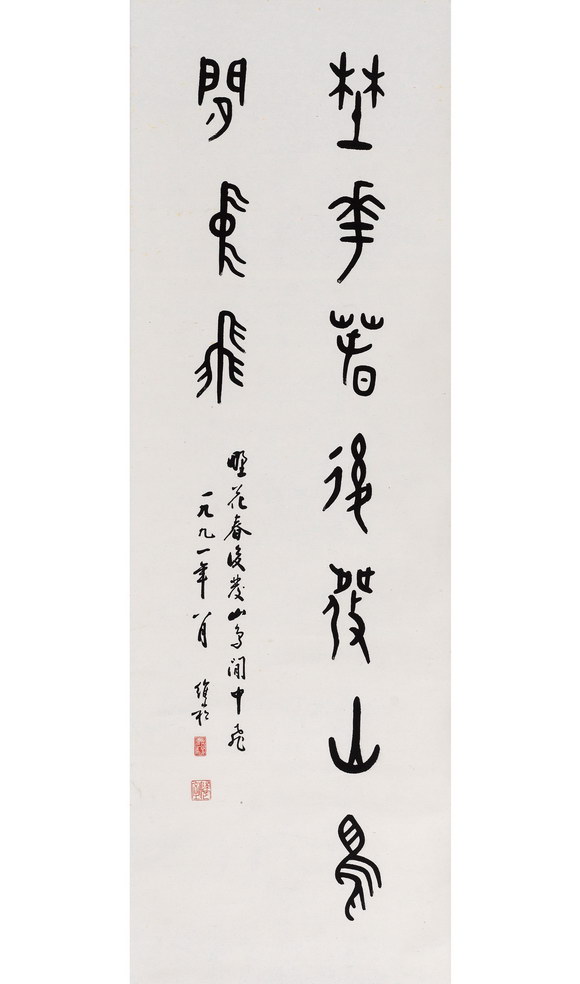 野花春後發山鳥
閒中飛
野花春後發山鳥閒中飛
一九九一年八月